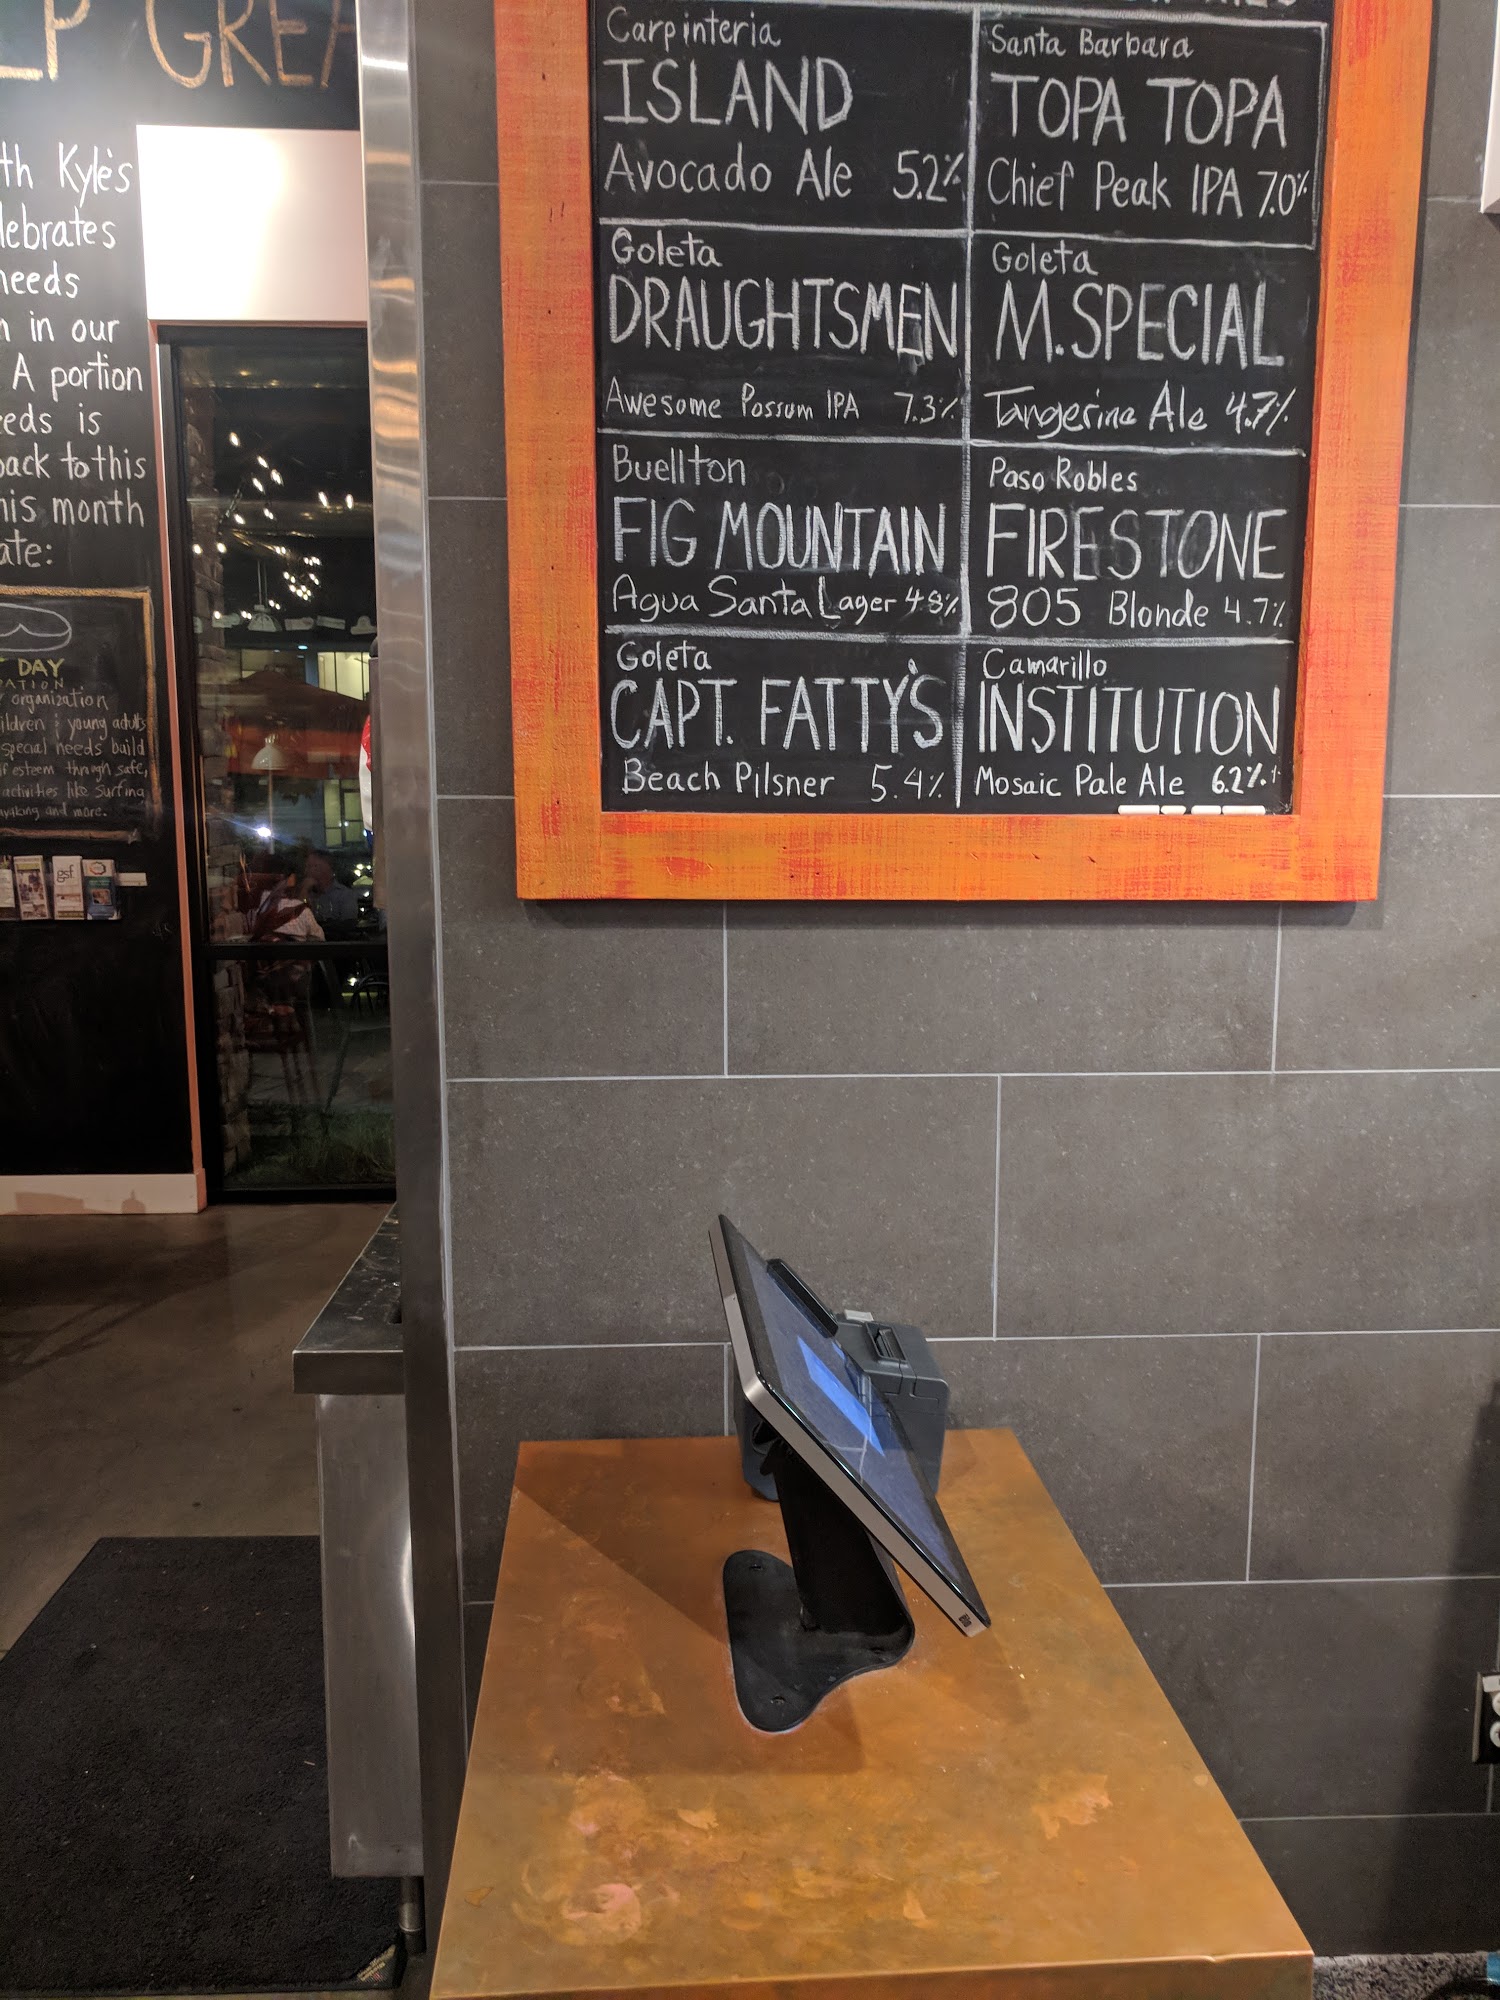 LP GREA
th Kyle's
lebrates
needs
n in our
A portion
eeds is
back to this
his month
ate:
DAY
ATION
organization
ildren & young adults
special needs build
f esteem through safe,
activities like surfing
yaking and more.
gsf
Carpinteria
ISLAND
Avocado Ale 5.2%
Santa Barbara
TOPA TOPA
Chief Peak IPA 7.0%
Goleta
DRAUGHTSMEN
Awesome Possum IPA 7.3%
Goleta
M.SPECIAL
Tangerine Ale 4.7%
Buellton
FIG MOUNTAIN
Agua Santa Lager 4.8%
Paso Robles
FIRESTONE
805 Blonde 4.7%
Goleta
CAPT. FATTY'S
Beach Pilsner 5.4%
Camarillo
INSTITUTION
Mosaic Pale Ale 6.2%
elo